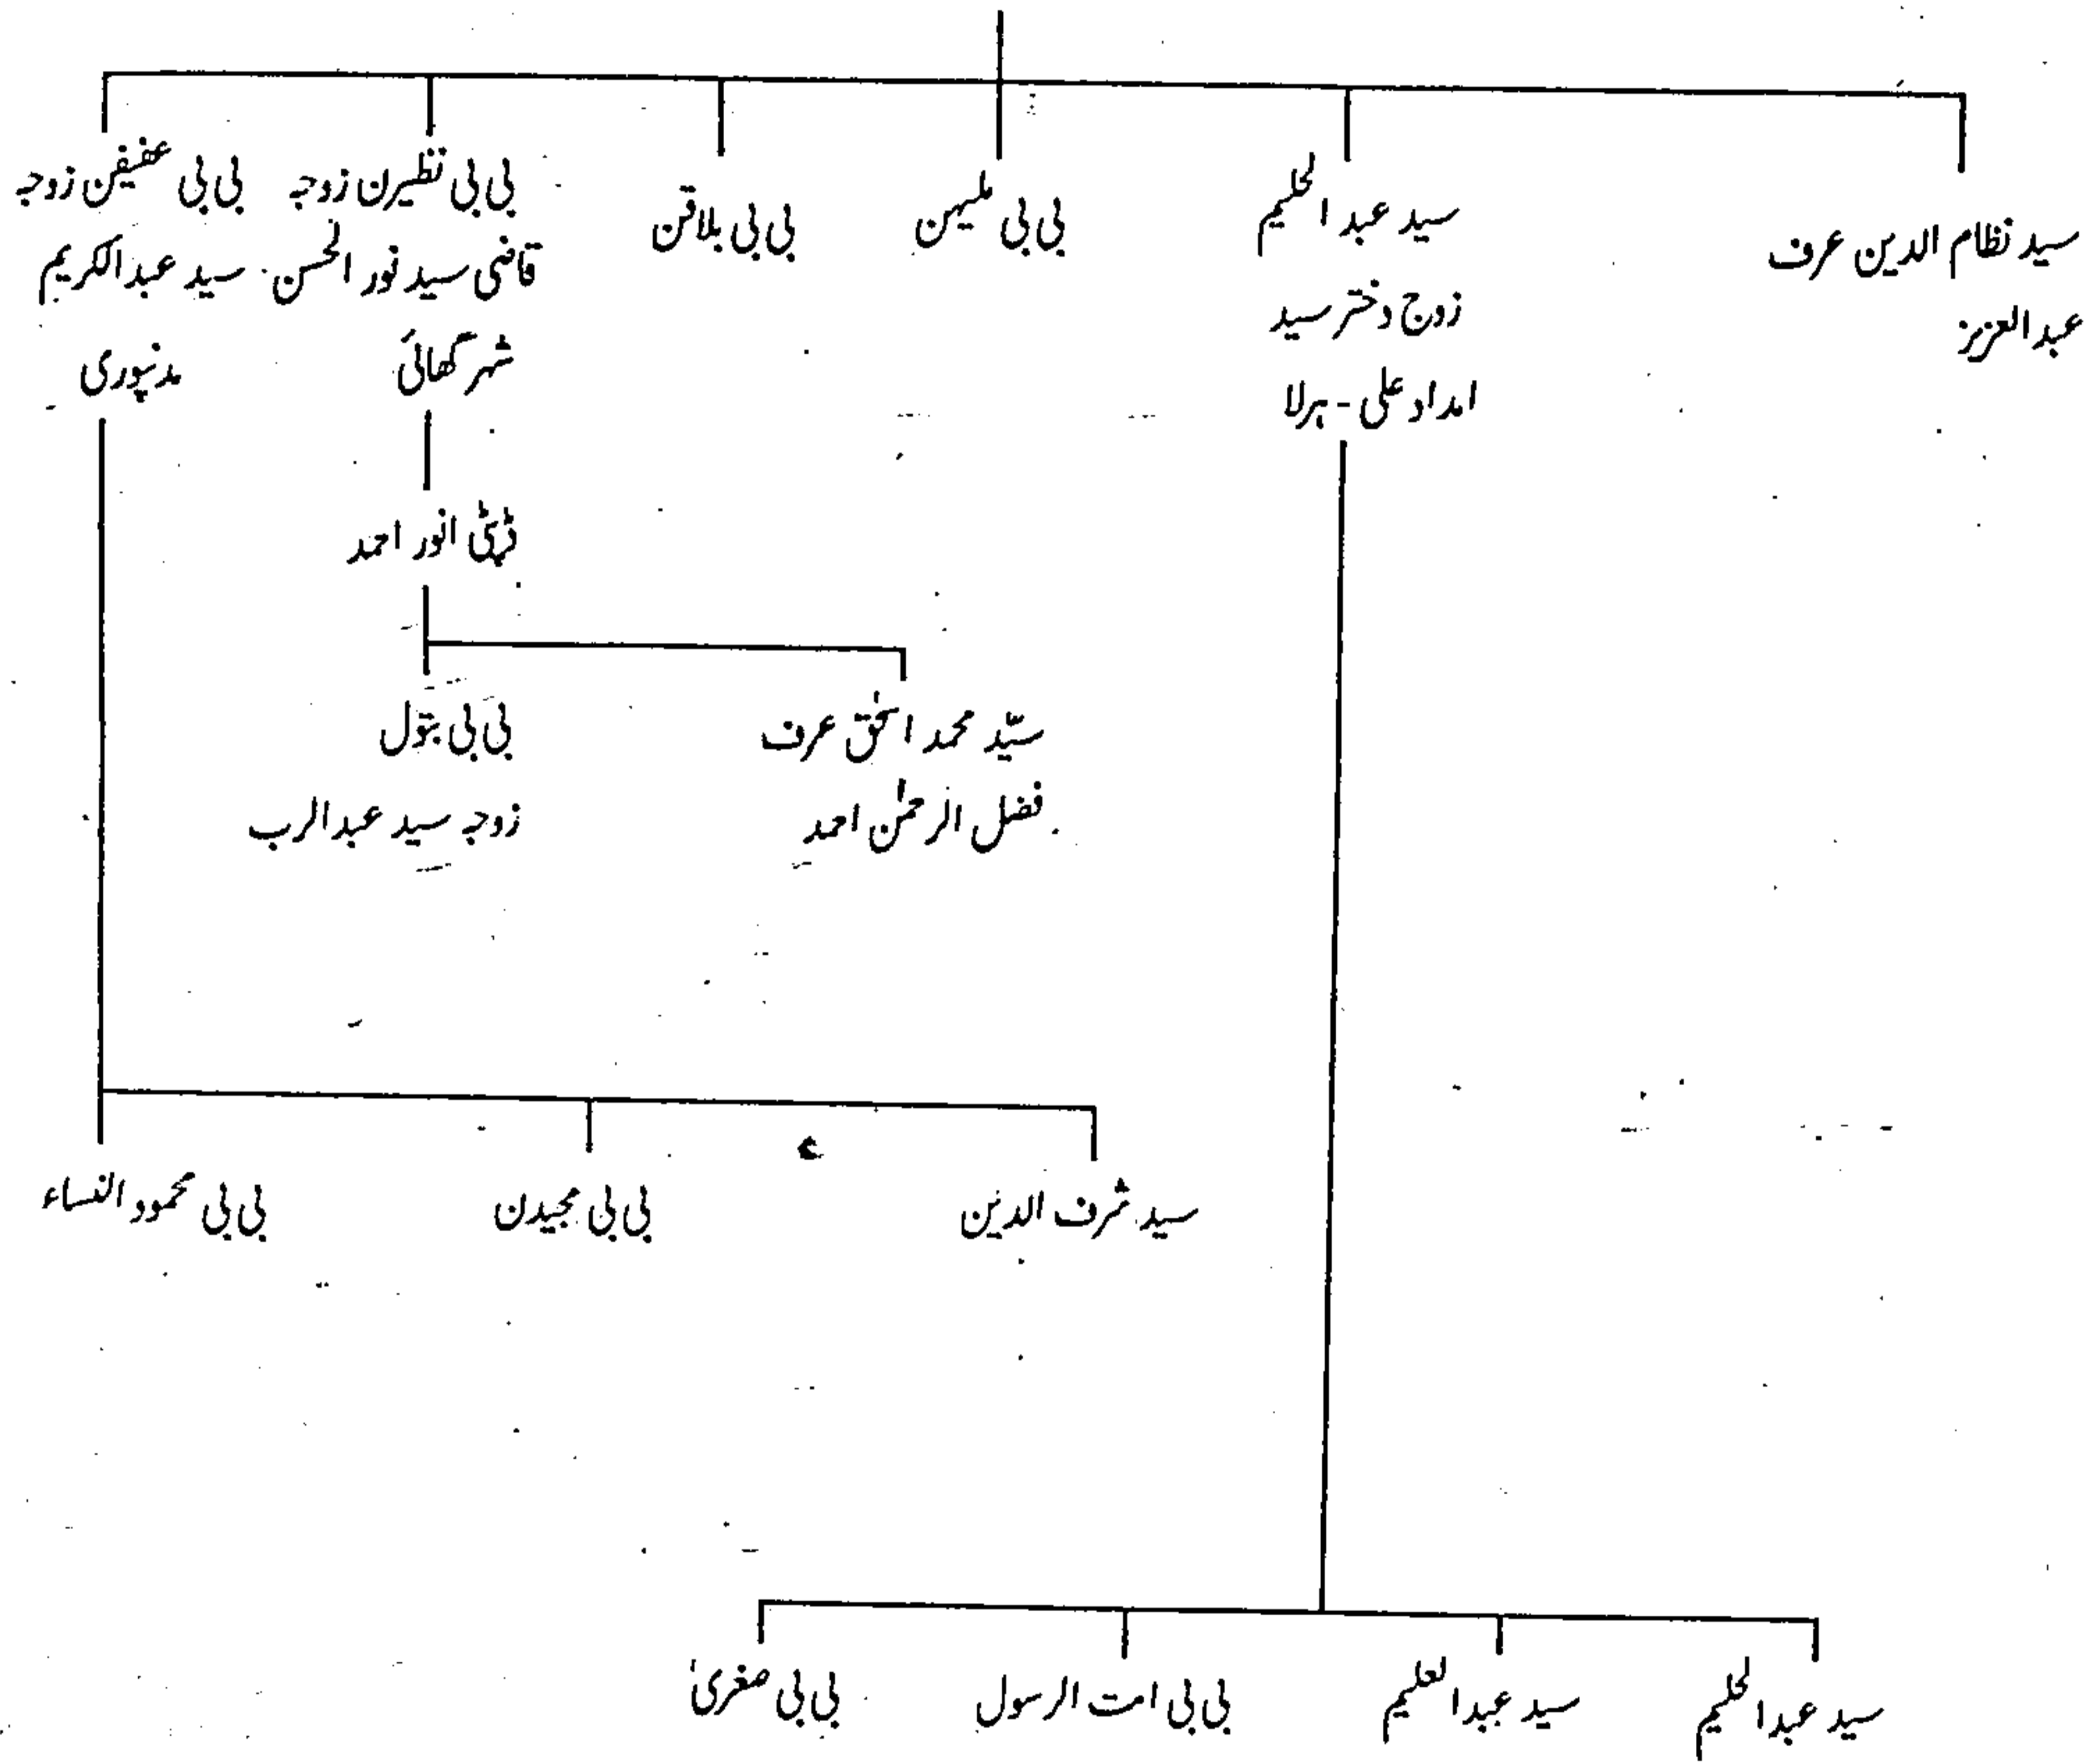 سید نظام الدین عرف
عبدالعزیز
سید عبدالحلیم
زوج دختر سید
امداد علی - ہرلا
بی بی ملیہن
بی بی بلاقن
بی بی نظیرن زوجہ
قاضی سید نور الحسن
شہر گھائی
بی بی عفیفن زوجہ
سید عبدالکریم
مدنپوری
ڈپٹی انور احمد
سیّد محمد اسحٰق عرف
فضل الرحمٰن احمد
بی بی بتول
زوجہ سید عبدالرب
سید شرف الدین
بی بی مجیدن
بی بی محمود النساء
سید عبدالحلیم
سید عبدالعلیم
بی بی امت الرسول
بی بی صغریٰ